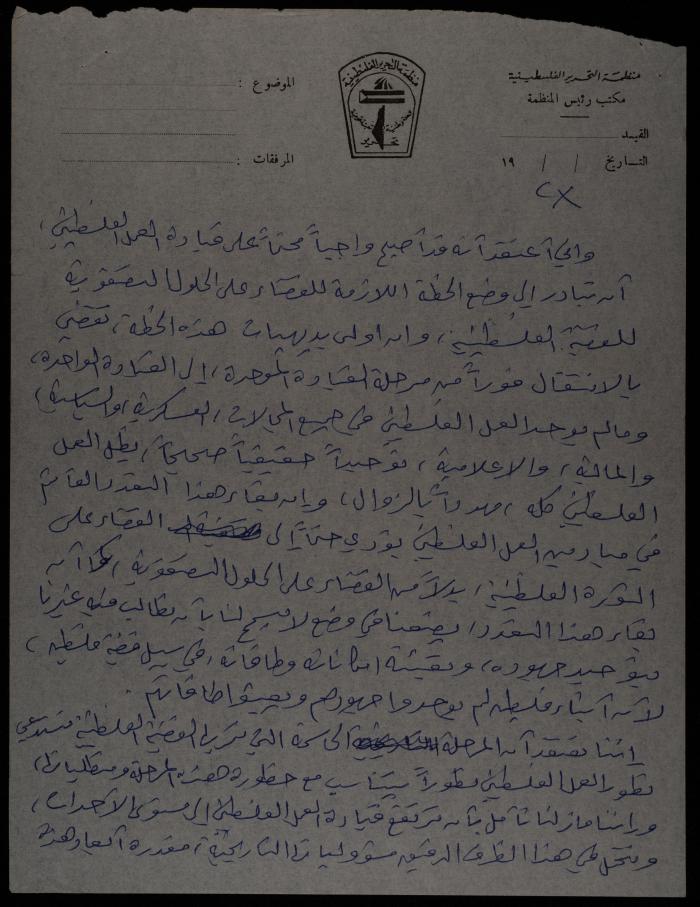 منظمة التحرير الفلسطينية
مكتب رئيس المنظمة
القيد
التاريخ / / ١٩
الموضوع :
المرفقات :
منظمة التحرير الفلسطينية
تحرير
واني أعتقد أنه قد أصبح واجباً محتماً على قيادة العمل الفلسطيني،
أن تبادر إلى وضع الخطة اللازمة للقضاء على الحلول التصفوية
للقضية الفلسطينية، وان اولى بديهيات هذه الخطة، تقضي
بالانتقال فوراً من مرحلة القيادة الموحدة، إلى القيادة الواحدة،
ومالم يوحد العمل الفلسطيني في جميع المجالات، العسكرية، والسياسية،
والمالية، والاعلامية، توحيداً حقيقياً صحيحاً، يظل العمل
الفلسطيني كله، مهدداً بالزوال، وان بقاء هذا التعدد القائم
في ميادين العمل الفلسطيني يؤدي حتماً إلى القضاء على
الثورة الفلسطينية، بدلاً من القضاء على الحلول التصفوية، كما أن
بقاء هذا التعدد، يضعنا في وضع لا يسمح لنا بأن نطالب فيه غيرنا
بتوحيد جهوده، وتعبئة امكاناته وطاقاته، في سبيل قضية فلسطين،
لأن أبناء فلسطين لم يوحدوا جهودهم ويعبئوا طاقاتهم .
إننا نعتقد أن المرحلة الحاسمة التي تمر بها القضية الفلسطينية تستدعي
تطور العمل الفلسطيني تطوراً يتناسب مع خطورة هذه المرحلة ومتطلباتها،
وإننا مازلنا نأمل بأن ترتفع قيادة العمل الفلسطيني إلى مستوى الأحداث،
وتتحمل في هذا الظرف الدقيق مسؤولياتها التاريخية، مقدرة أبعاد هذه